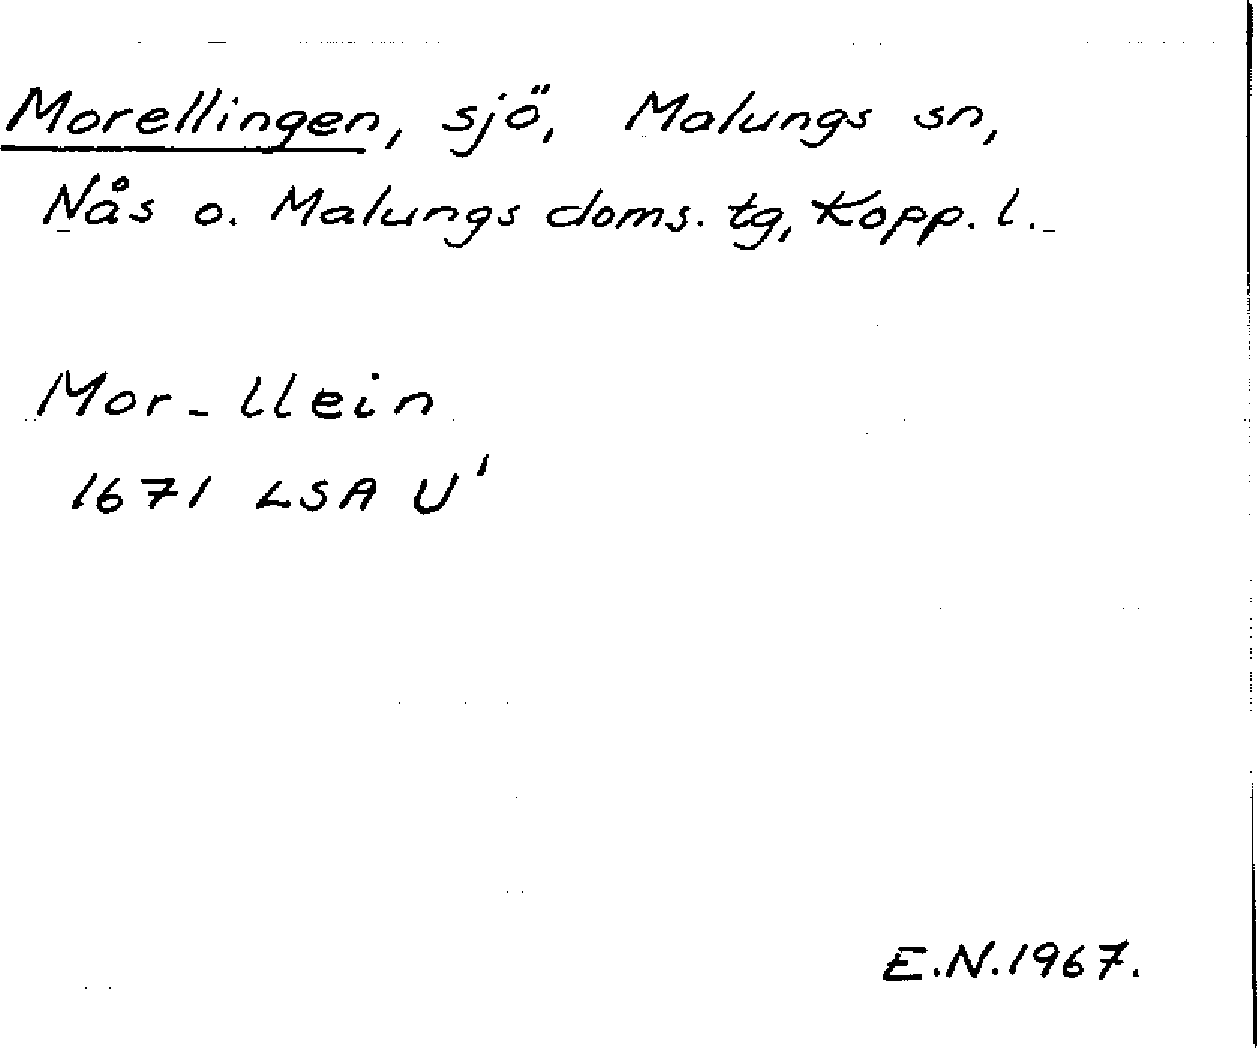 Morellingen, sjö, Malungs sn,
Nås o. Malungs doms. tg, Kopp. l.
Mor-llein
1671 LSA U'
E.N.1967.